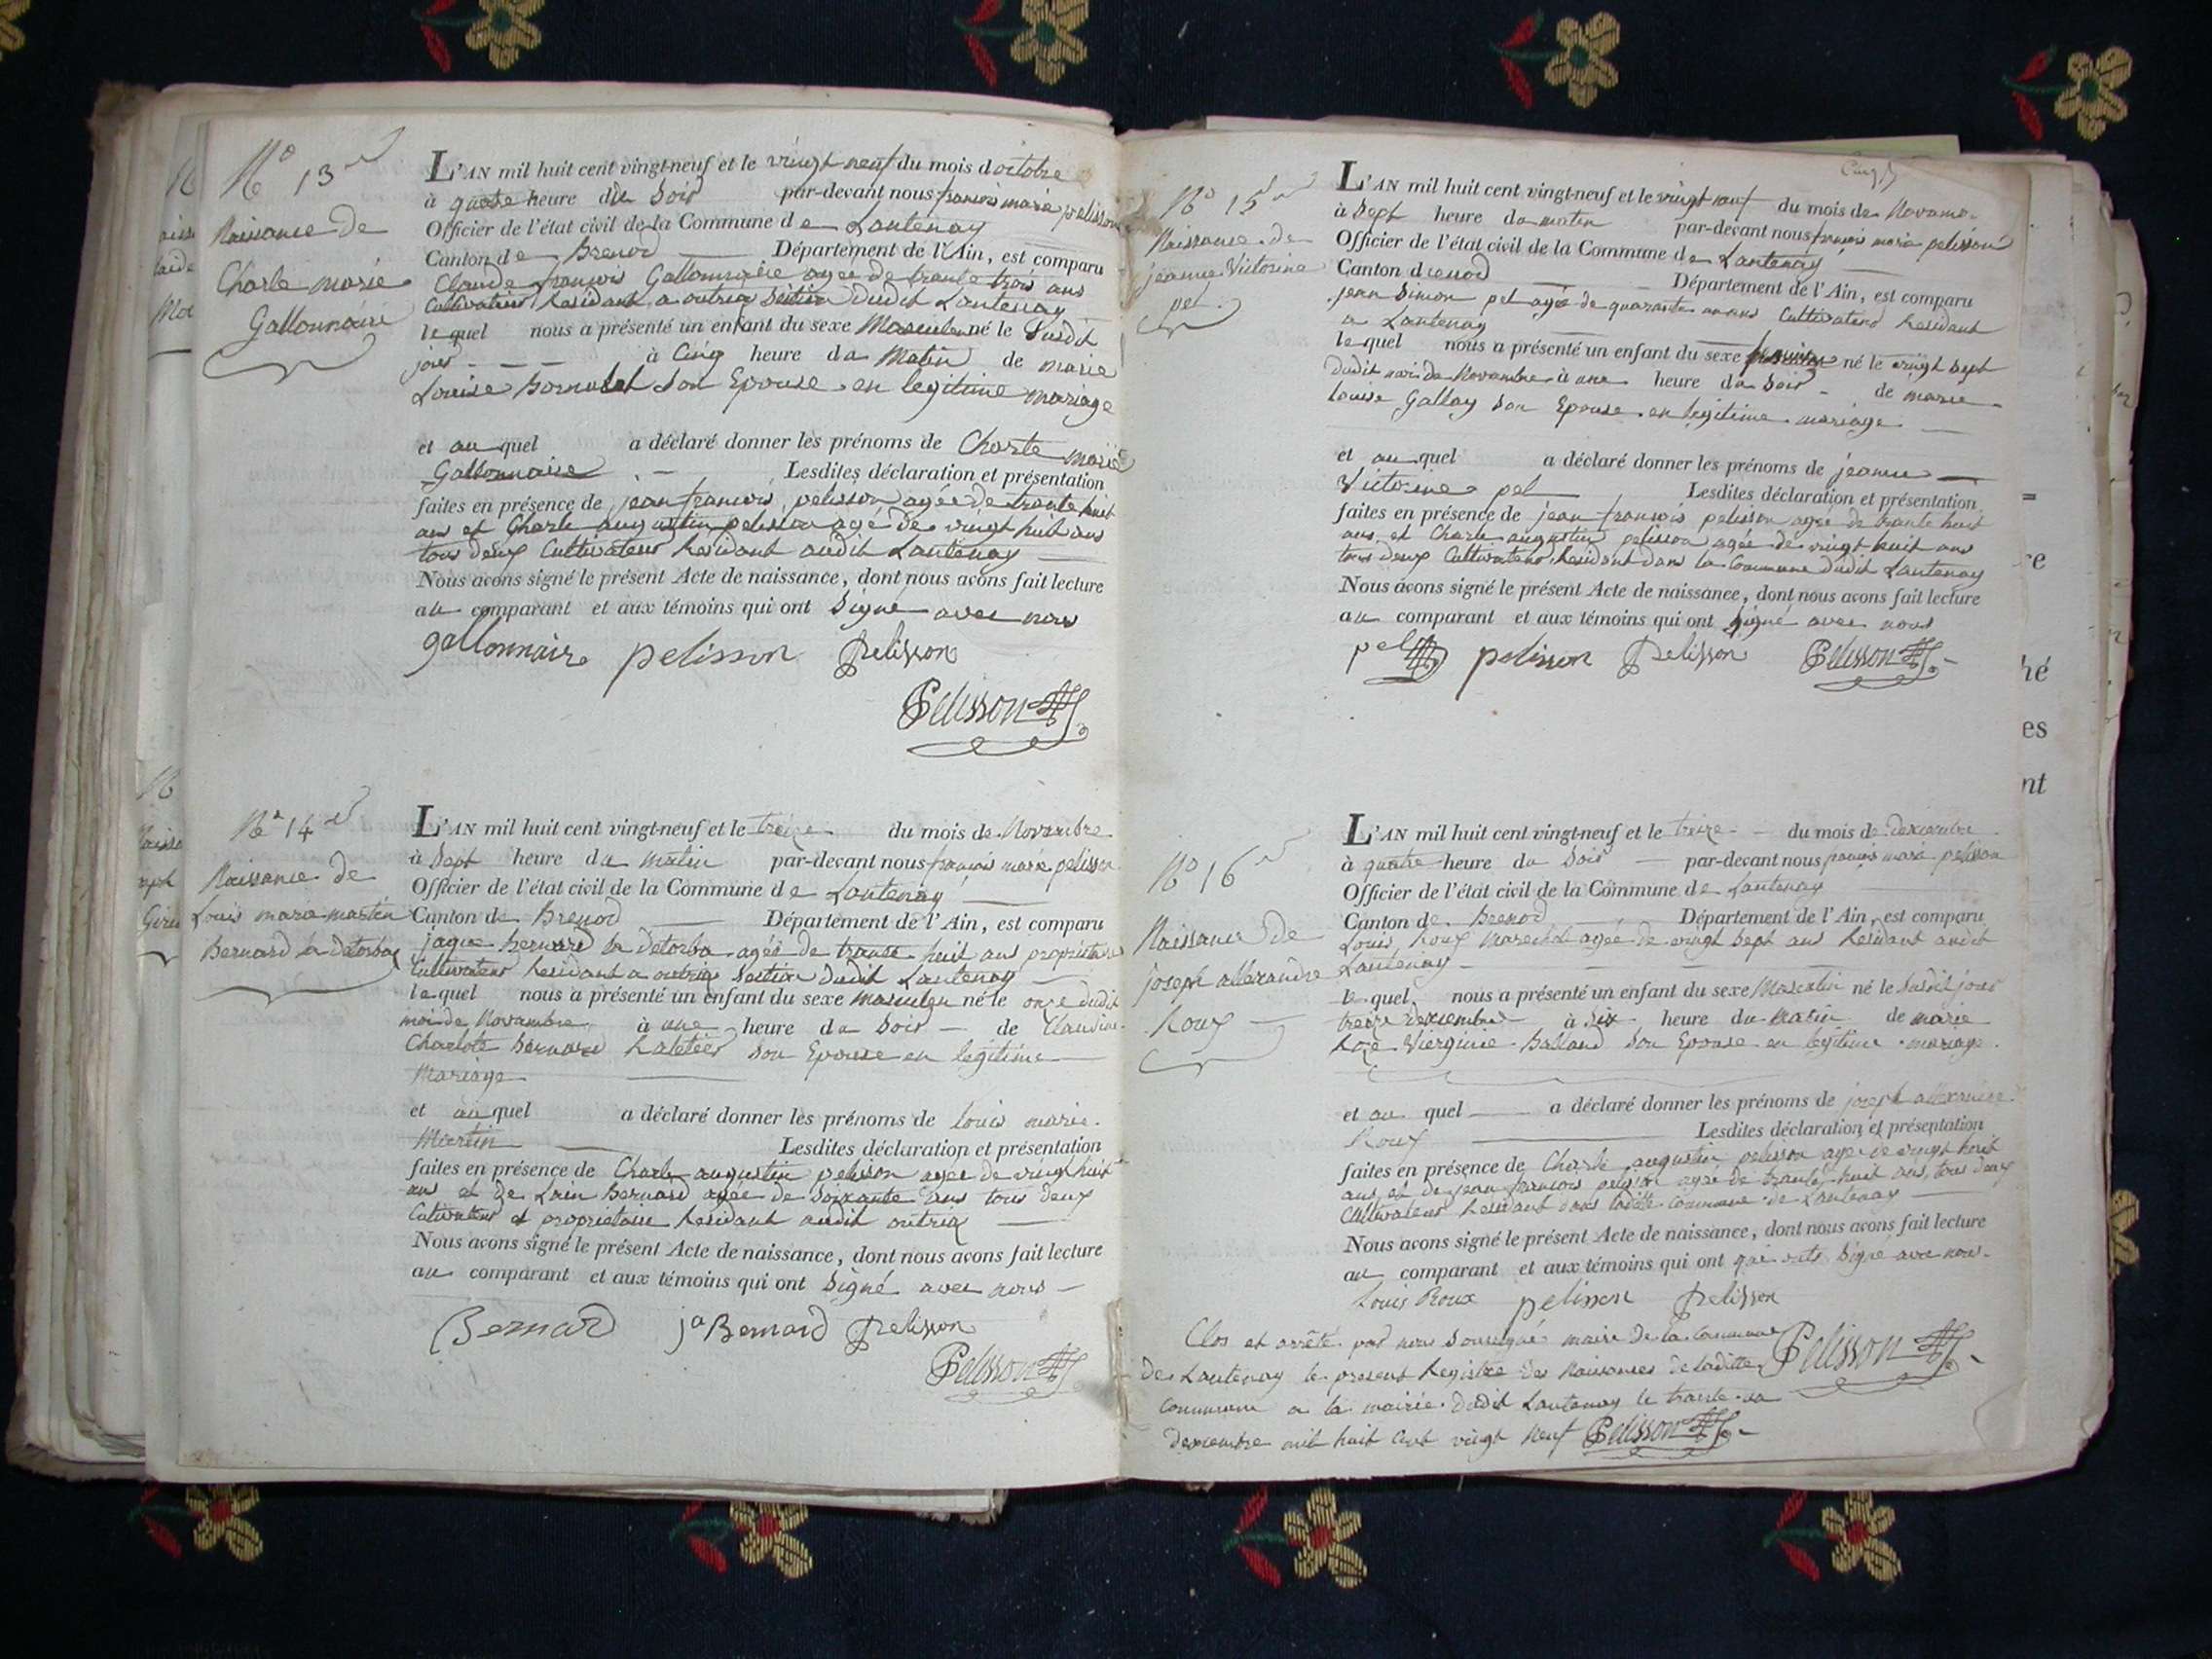 No 13
Naissance de
Charle marie
Gallonnaire
L'AN mil huit cent vingt-neuf et le vingt neuf du mois d octobre
à quatre heure du Soir par-devant nous francois marie pelisson
Officier de l'état civil de la Commune de Lantenay
Canton de Brenod Département de l'Ain, est comparu
Claude francois Gallonnaire agée de trante trois ans
Cultivateur Residant a outriaz Section dudit Lantenay
lequel nous a présenté un enfant du sexe Masculen né le Susdit
jour à Cinq heure du Matin de marie
Louise son Epouse en legitime mariage
et au quel a déclaré donner les prénoms de Charle marie
Gallonnaire Lesdites déclaration et présentation
faites en présence de jean francois pelisson agée de trante huit
ans et Charle augustin pelisson agé de vingt huit ans
tous deux Cultivateur Residant audit Lantenay
Nous avons signé le présent Acte de naissance, dont nous avons fait lecture
au comparant et aux témoins qui ont Signé avec nous
gallonnaire pelisson Pelisson
Pelisson
No 14
Naissance de
Louis marie martin
Bernard la detorba
L'AN mil huit cent vingt-neuf et le treize du mois de Novembre
à Sept heure du matin par-devant nous francois marie pelisson
Officier de l'état civil de la Commune de Lantenay
Canton de Brenod Département de l'Ain, est comparu
jaque Bernard la detorba agée de trante huit ans propriétaire
Cultivateur Residant a outriaz Section dudit Lantenay
lequel nous a présenté un enfant du sexe masculen né le onze dudit
moi de Novembre à une heure du Soir de Claudine
Charlote Bernard son Epouse en legitime
Mariage
et au quel a déclaré donner les prénoms de louis marie
Martin Lesdites déclaration et présentation
faites en présence de Charle augustin pelisson agée de vingt huit
ans et de Bernard agée de Soixante ans tous deux
Cultivateur et propriétaire Residant audit outriaz
Nous avons signé le présent Acte de naissance, dont nous avons fait lecture
au comparant et aux témoins qui ont Signé avec nous
Bernard ja Bernard Pelisson
Pelisson
No 15
Naissance de
jeanne Victorine
pet
L'AN mil huit cent vingt-neuf et le vingt neuf du mois de Novem
à Sept heure du matin par-devant nous francois marie pelisson
Officier de l'état civil de la Commune de Lantenay
Canton d Département de l'Ain, est comparu
jean Simon pet agée de quarante ans Cultivateur Residant
a Lantenay
lequel nous a présenté un enfant du sexe né le vingt Sept
dudit moi de Novembre à une heure du Soir de marie
louise Gallay Son Epouse en legitime mariage
et au quel a déclaré donner les prénoms de jeanne
Victorine pet Lesdites déclaration et présentation
faites en présence de jean francois pelisson agée de trante huit
ans, et Charle augustin pelisson agée de vingt huit ans
tous deux Cultivateur Residant dans la Commune dudit Lantenay
Nous avons signé le présent Acte de naissance, dont nous avons fait lecture
au comparant et aux témoins qui ont Signé avec nous
pet pelisson Pelisson Pelisson
No 16
Naissance de
joseph allexandre
Roux
L'AN mil huit cent vingt-neuf et le treize du mois de dexcembre
à quatre heure du Soir par-devant nous francois marie pelisson
Officier de l'état civil de la Commune de Lantenay
Canton de Brenod Département de l'Ain, est comparu
Louis Roux Marechal agée de vingt Sept ans Residant audit
Lantenay
le quel nous a présenté un enfant du sexe Masculin né le Susdit jour
treize dexcembre à Six heure du Matin de marie
Roze Vierginie Balland Son Epouse en legitime mariage
et au quel a déclaré donner les prénoms de joseph allexandre
Roux Lesdites déclaration et présentation
faites en présence de Charle augustin pelisson agée de vingt huit
ans, et de jean francois pelisson agée de trante huit ans, tous deux
Cultivateur Residant dans laditte Commune de Lantenay
Nous avons signé le présent Acte de naissance, dont nous avons fait lecture
au comparant et aux témoins qui ont qui onts Signé avec nous
Louis Roux pelisson Pelisson
Clos et arrêté par nous Sousigné maire de la Commune Pelisson
de Lantenay le present Registre des Naissances de laditte
Commune a la mairie dudit Lantenay le trante un
dexcembre mil huit Cent vingt Neuf Pelisson